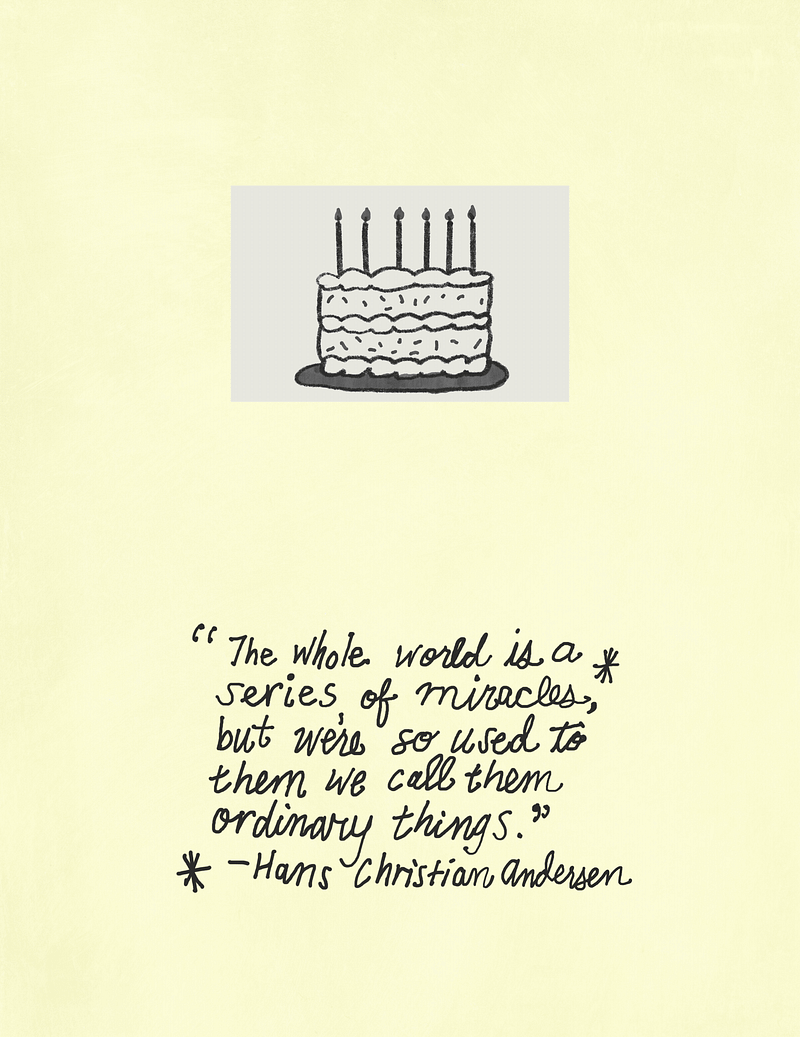 “The whole world is a *
series of miracles,
but we're so used to
them we call them
ordinary things.”
* -Hans Christian Andersen